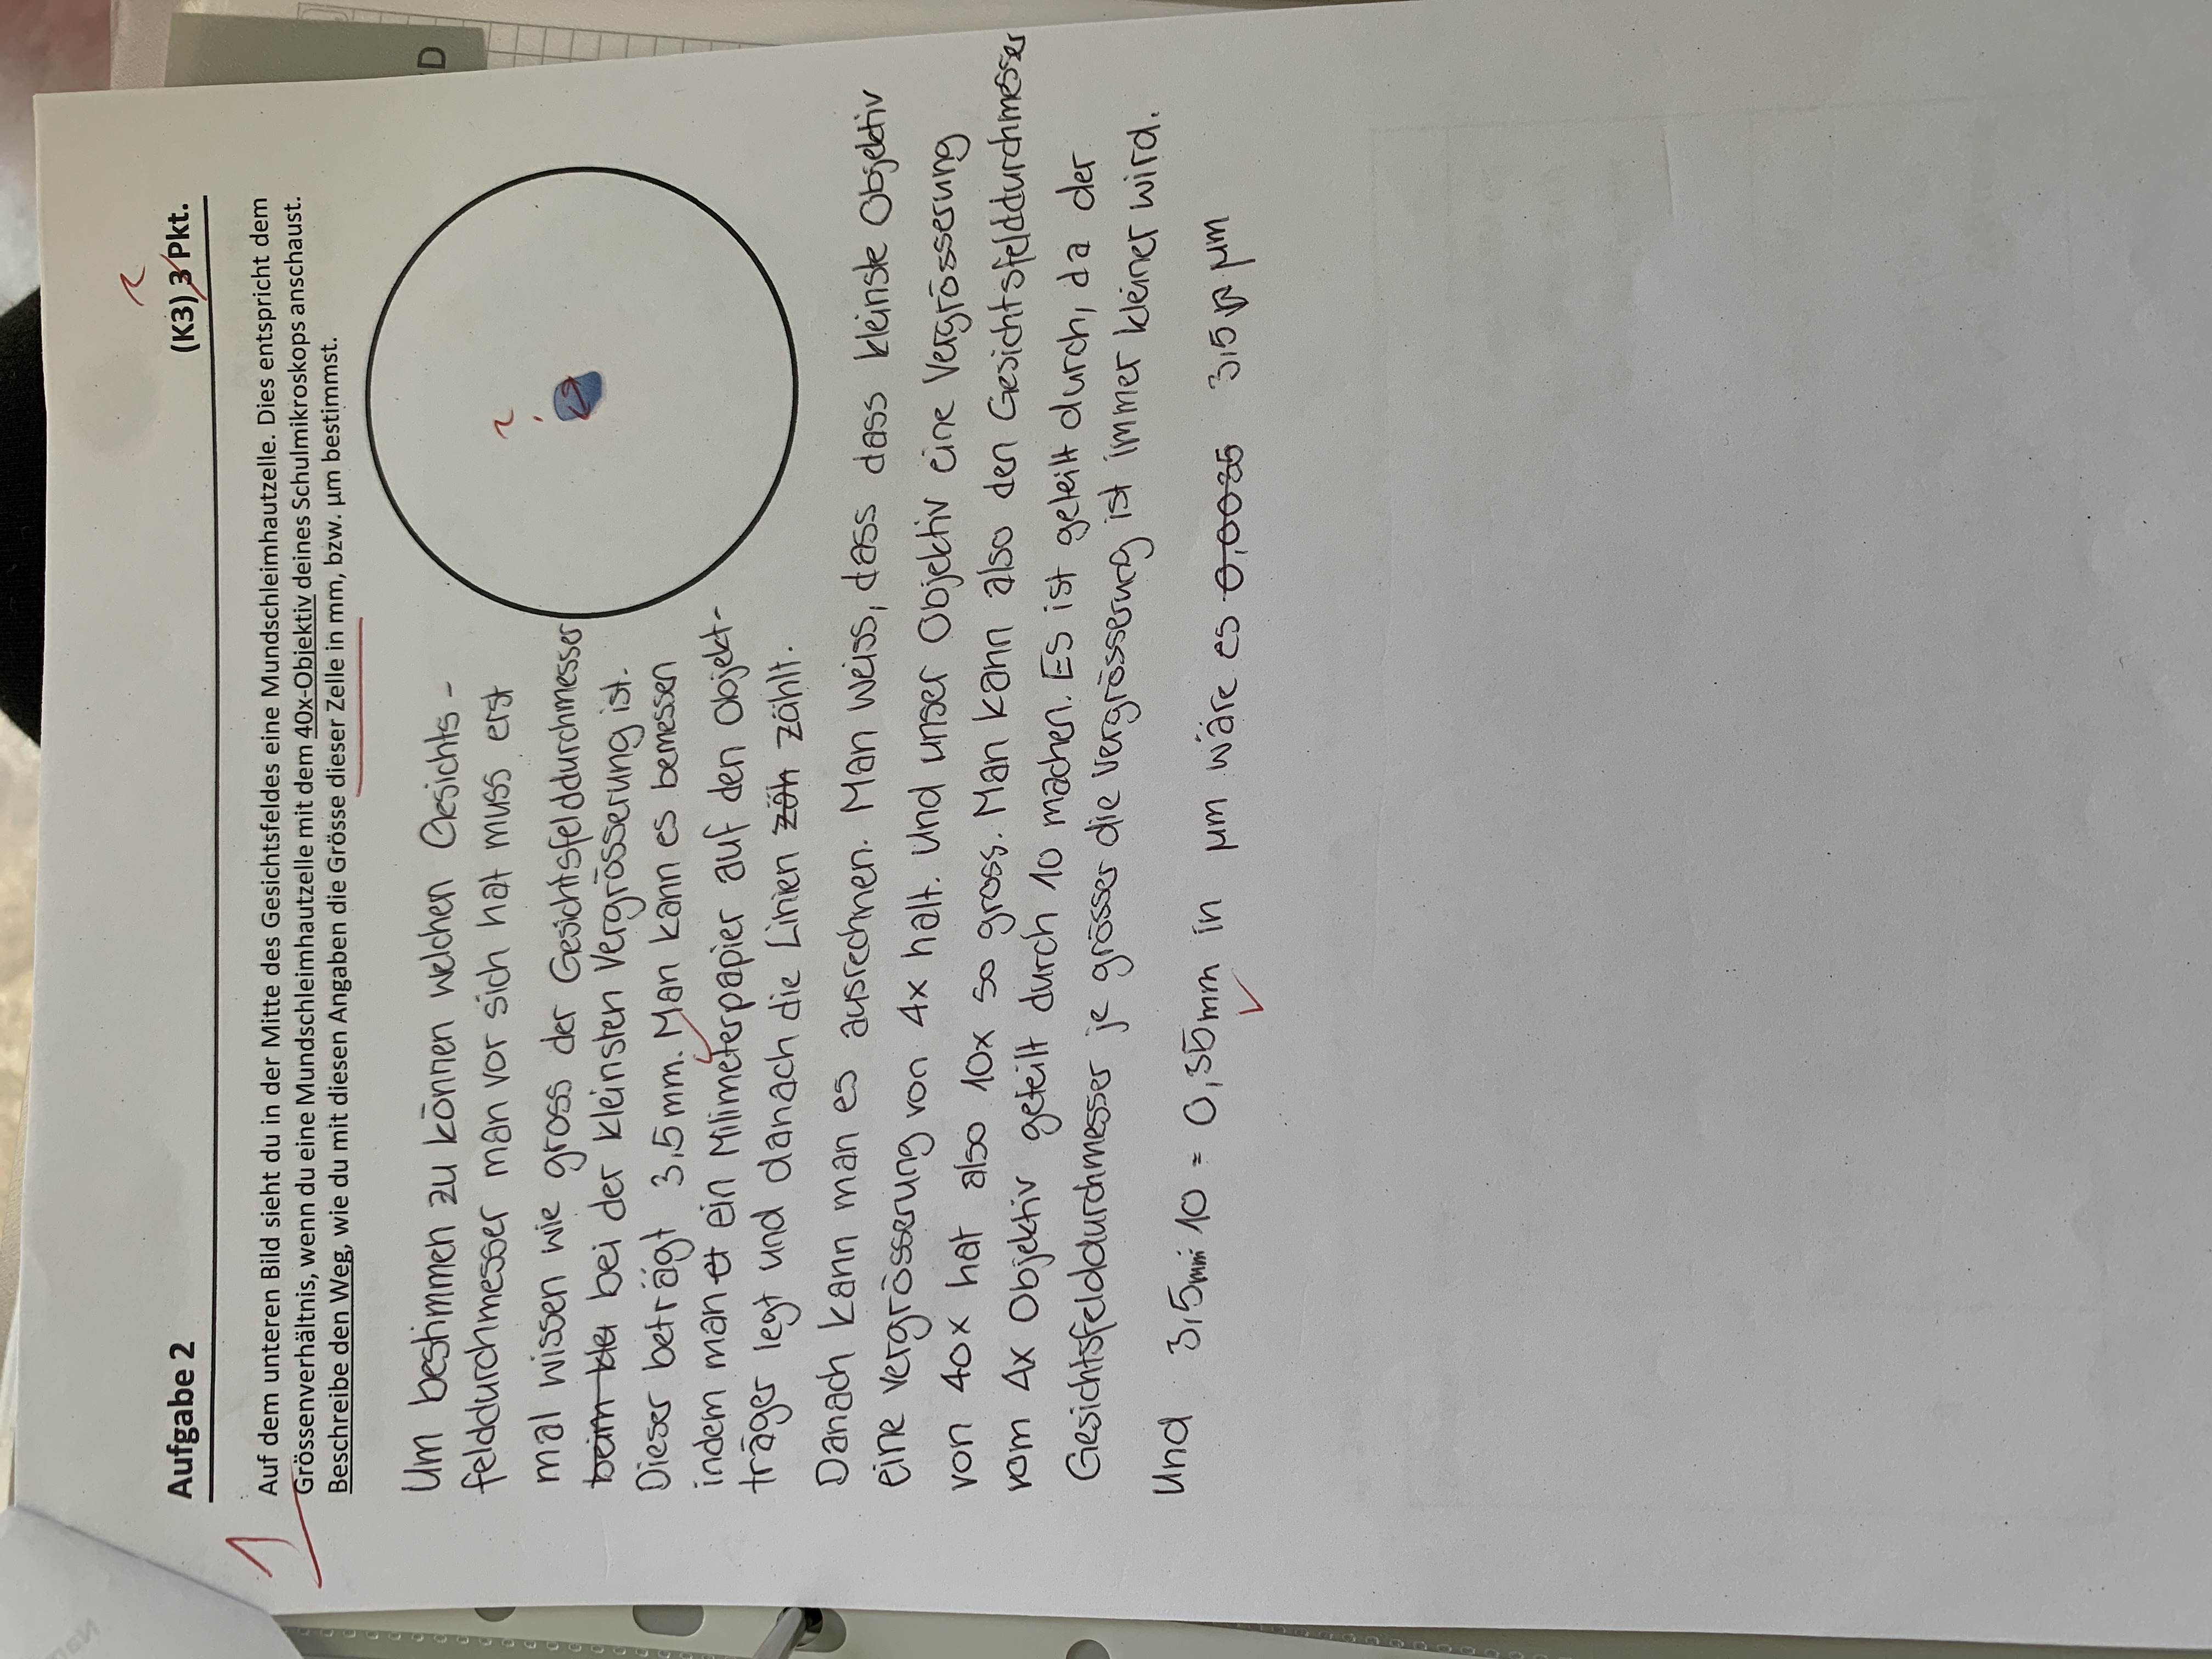 Aufgabe 2
(K3) 3 Pkt.
2
1
Auf dem unteren Bild sieht du in der Mitte des Gesichtsfeldes eine Mundschleimhautzelle. Dies entspricht dem
Grössenverhältnis, wenn du eine Mundschleimhautzelle mit dem 40x-Objektiv deines Schulmikroskops anschaust.
Beschreibe den Weg, wie du mit diesen Angaben die Grösse dieser Zelle in mm, bzw. µm bestimmst.
Um bestimmen zu können welchen Gesichts-
felddurchmesser man vor sich hat muss erst
mal wissen wie gross der Gesichtsfelddurchmesser
beim kle bei der kleinsten Vergrösserung ist.
Dieser beträgt 3,5mm. Man kann es bemessen
indem man et ein Milimeterpapier auf den Objekt-
träger legt und danach die Linien zöh zählt.
Danach kann man es ausrechnen. Man weiss, dass dass kleinste Objektiv
eine vergrösserung von 4x halt. Und unser Objektiv eine Vergrösserung
von 40x hat also 10x so gross. Man kann also den Gesichtsfelddurchmesser
vom 4x Objektiv geteilt durch 10 machen. Es ist geteilt durch, da der
Gesichtsfelddurchmesser je grösser die vergrösserung ist immer kleiner wird.
Und 3,5mm : 10 = 0,35mm in µm wäre es 0,0035 3,5 µm
D